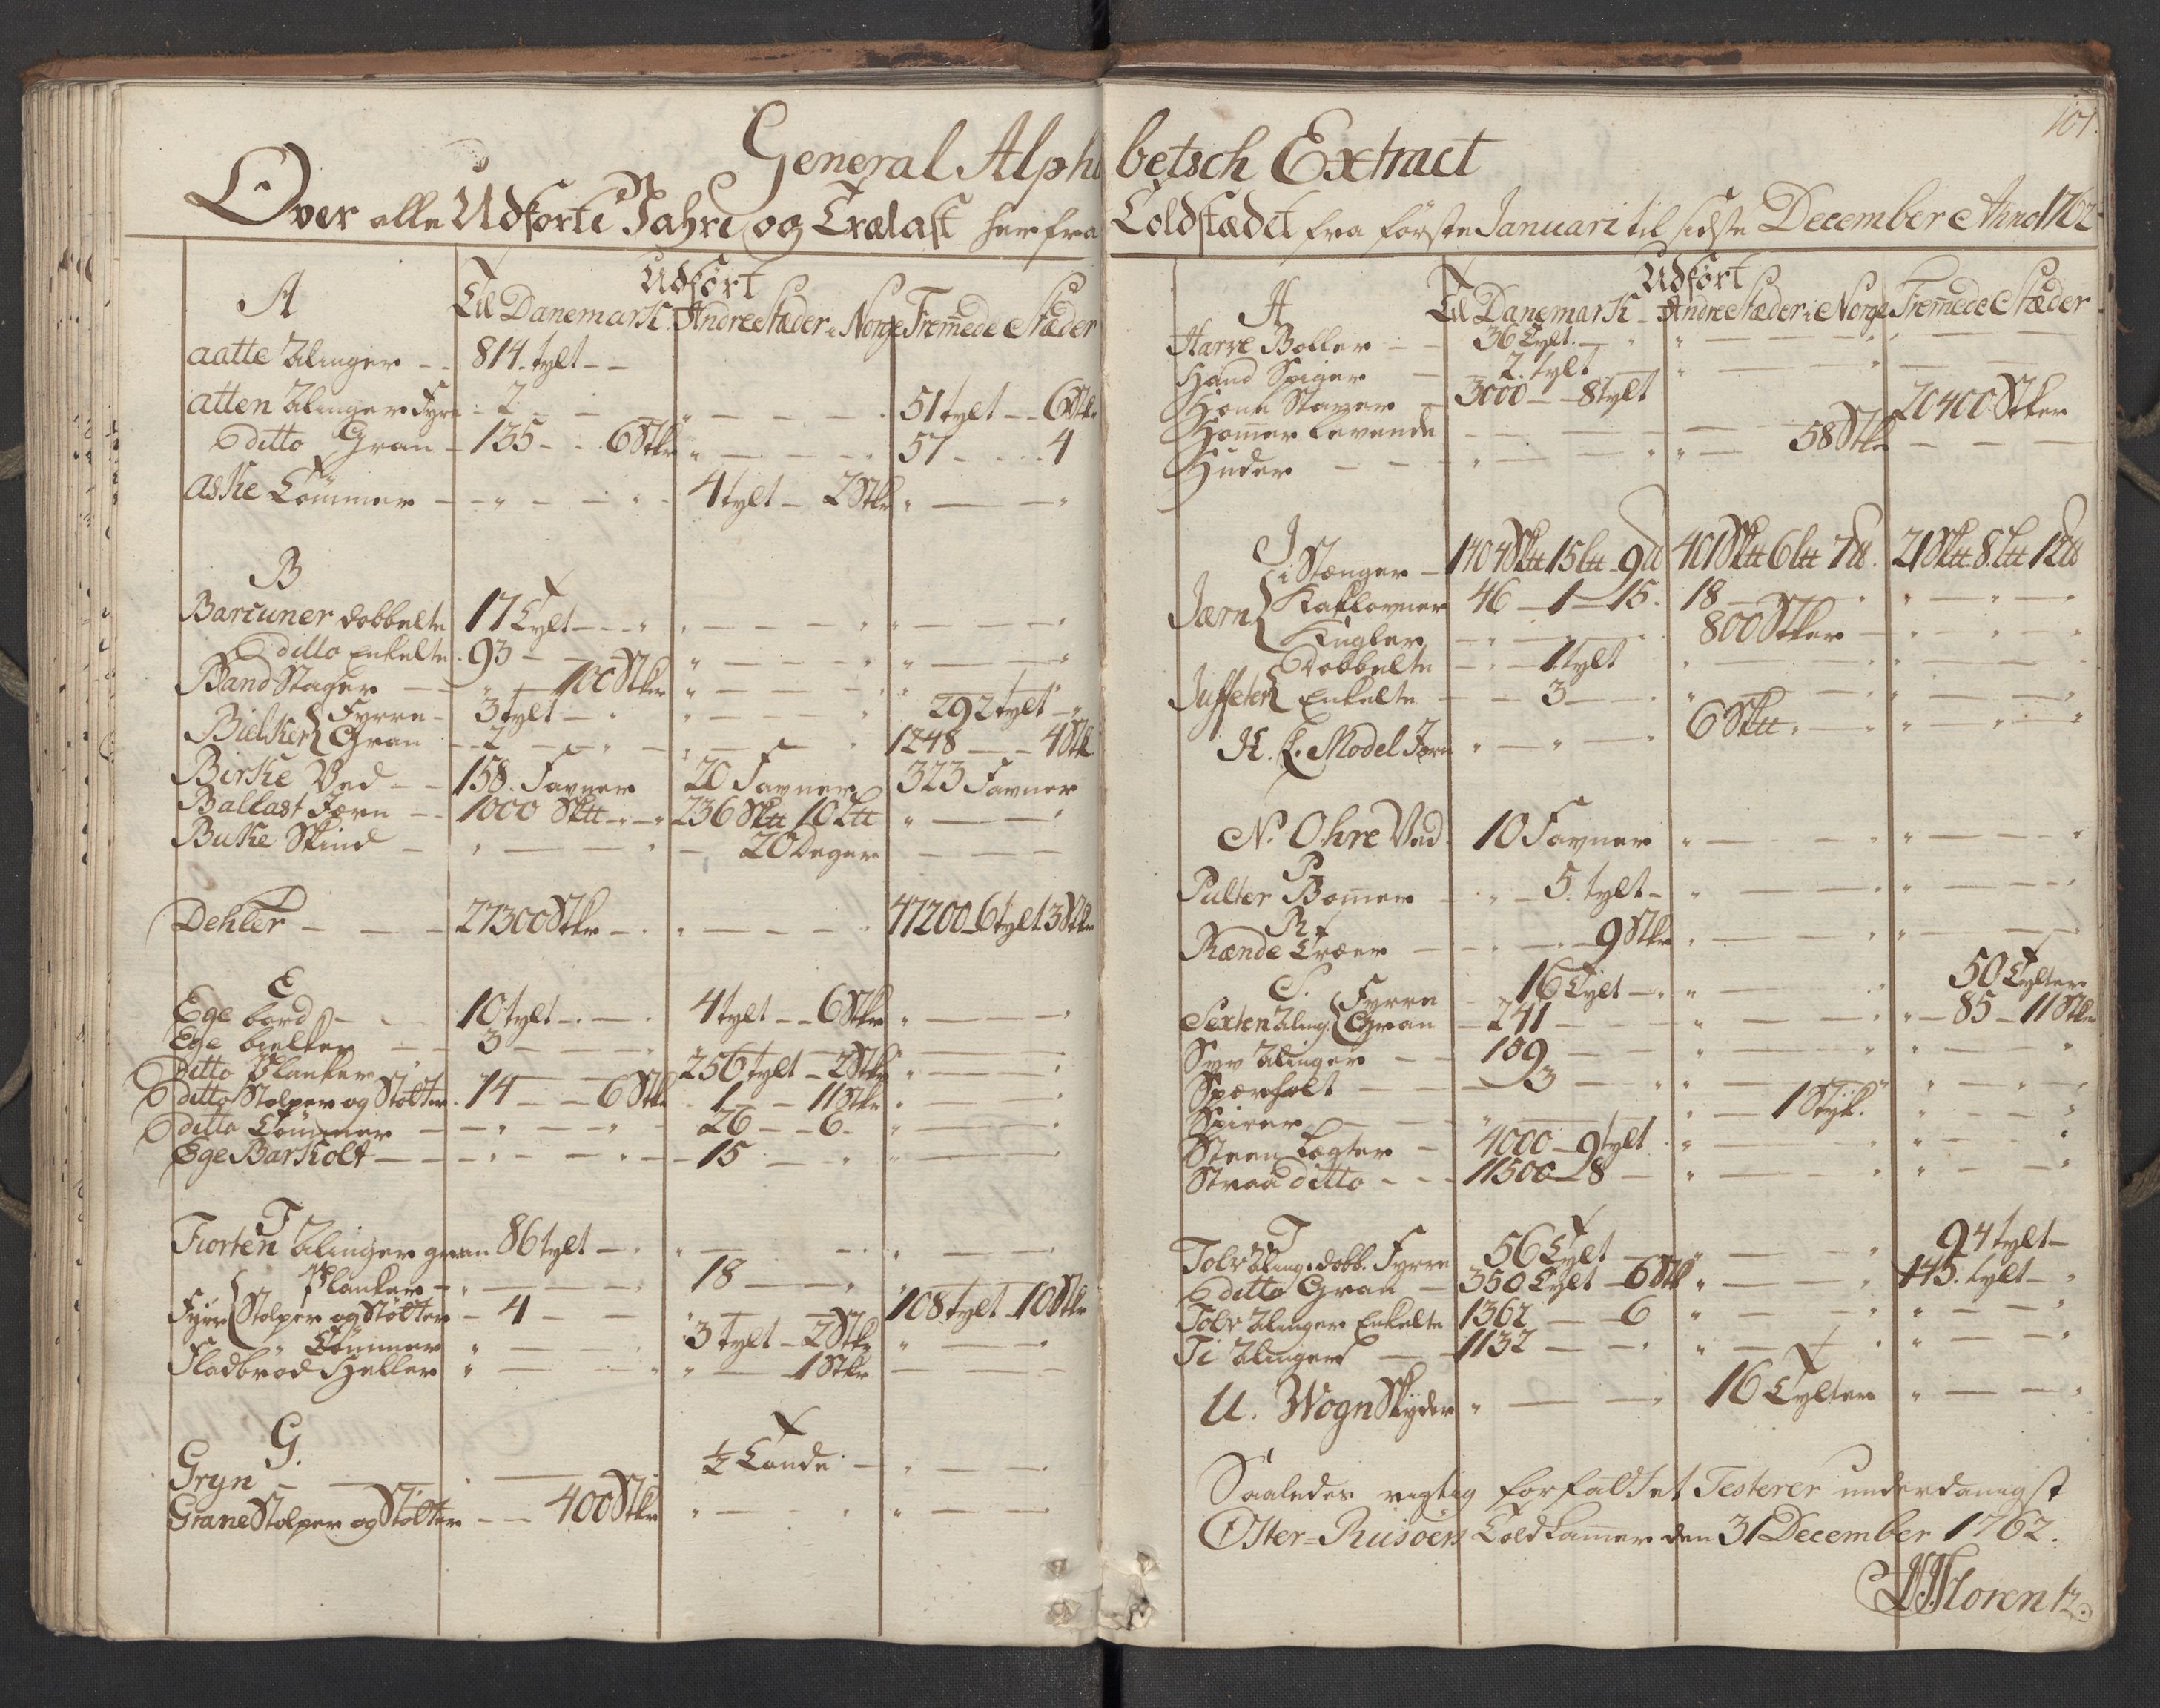 101.
General Alphabetsch Extract
Over alle Udförte Vahre og Trælast her fra Toldstædet fra förste Januari til sidste December Anno 1762
A
Udfört
Til Danemark Andre Stæder i Norge Fremmede Stæder
aatte Alinger - - 814. tylt - -
atten Alinger Fyrre - 2. - - " - - - 51 tylt - - 6 Stkr
ditto Gran - 135 - - 6 Stkr " - - - 57 - - - 4
aske Tömmer - - " - - " 4 tylt - 2 Stkr " - - "
B
Barcuner dobbelte 17 Tylt - - " " - - - " " - - - "
ditto Enkelte 93 - - - " - - - " " - - - "
Baand Stager - - " - 100 Stkr " - - - " " - - - "
Bielker { Fyrre - 3 tylt - " " - - - " 292 tylt - "
Gran - 2 - - " - " - - - " 1248 - - 4 Stk
Birke Ved - - 158. Favner 20 Favner 323 Favner
Ballast Jærn - - 1000 Sktt - - " 236 Sktt 10 Ltt " - - "
Buke Skind - " - - " - " 20 Deger - - -
D
Dehler - - - 27300 Stkr - " " - - - " 47200 - 6 tylt 3 Stkr
E
Ege bord - - 10 tylt - - 4 tylt - - 6 Stkr " - - "
Ege bielker - - 3 - - - " - - - " - - "
ditto Planker - - - 256 tylt - 2 Stkr " - - "
ditto Stolper og Stötter . 14 - - 6 Stkr - 1 - - 11 Stkr " - - "
ditto Tömmer - - " - - " - 26 - - 6 - " - - "
Ege Barkolt - - - " - - " - 15 - - " " - - "
F
Fiorten Alinger gran 86 tylt - " " - - - " - - -
Fyrre { Planker - " - - " 18 - - " "
Stolper og Stötter - 4 - - - - - 108 tylt 10 Stkr
" Tömmer " - - - " 3 tylt - 2 Stkr " - - "
Fladbröd Heller " - - - " " - 1 Stkr - - -
G.
Gryn - - - " - - - ½ Tönde - " - - "
Grane Stolper og Stötter - - 400 Stkr " - - " " - - "
H
Udfört
Til Danemark - Andre Stæder i Norge Fremmede Stæder
Harve Boller - - 36 Tylt. - " " - - - " " - - -
Haand Spiger - 2. tylt " - - - " - -
Höne Stager - 3000 - - 8 tylt
Hommer levende - - - - - - - - 20400 Stker
Huder - - - " - - " " - 58 Stkr - - -
J
Jærn { i Stænger - 1404 Sktt 15 Ltt 9 ℔ 401 Sktt 6 Ltt 7 ℔. 21 Sktt 8 Ltt 12 ℔
Kaklovner 46 - 1 - 15. 18 - - - " " - " - "
Kugler - " - - - " 800 Stker - " - - "
Juffeter { Dobbelte - " - 1 tylt " - - - " " - - "
Enkelte - - 3 - - " " - - - " " - - "
K. L. Model Jærn " - " - " 6 Sktt " - " " - " - "
N. O. Ohre Ved. 10 Favner " - - - " " - - - "
P
Pulter Bommer - " - 5. tylt - " - - - " " - - "
R
Rænde Træer - - " - - 9 Stkr " - - - " " - - "
S.
Sexten Aling. { Fyrre - 16 Tylt - " " - - - " 50 Tylter
Gran - 241 - - - " - - - " " - 85 - 11 Stkr
Syv Alinger - - 109 - - " - - - " " - - "
Spærholt - - - 3 - - " " - - - " " - - "
Spirer - - - " - - " - 1 Styk. " - - "
Steen Lægter - 4000 - 9 tylt " - - - " " - - "
Straa ditto - - - 11500 - 8 - " - - - " " - - "
T
Tolv Aling. dobb. Fyrre 56 Tylt " - - - " 94 tylt -
ditto Gran - 350 Tylt - 6 Stk " - - - " 145. tylt - "
Tolv Alinger Enkelte 1362 - - 6 " - - - " " - - "
Ti Alinger - - 1132 - - " " - - - " " - - "
U. Wogn Skyder " - - - " 16 Tylter " - - "
Saaledes rigtig forfattet Testerer underdanigst
Öster-Riisöers Toldkammer den 31 December 1762.
Lorentz